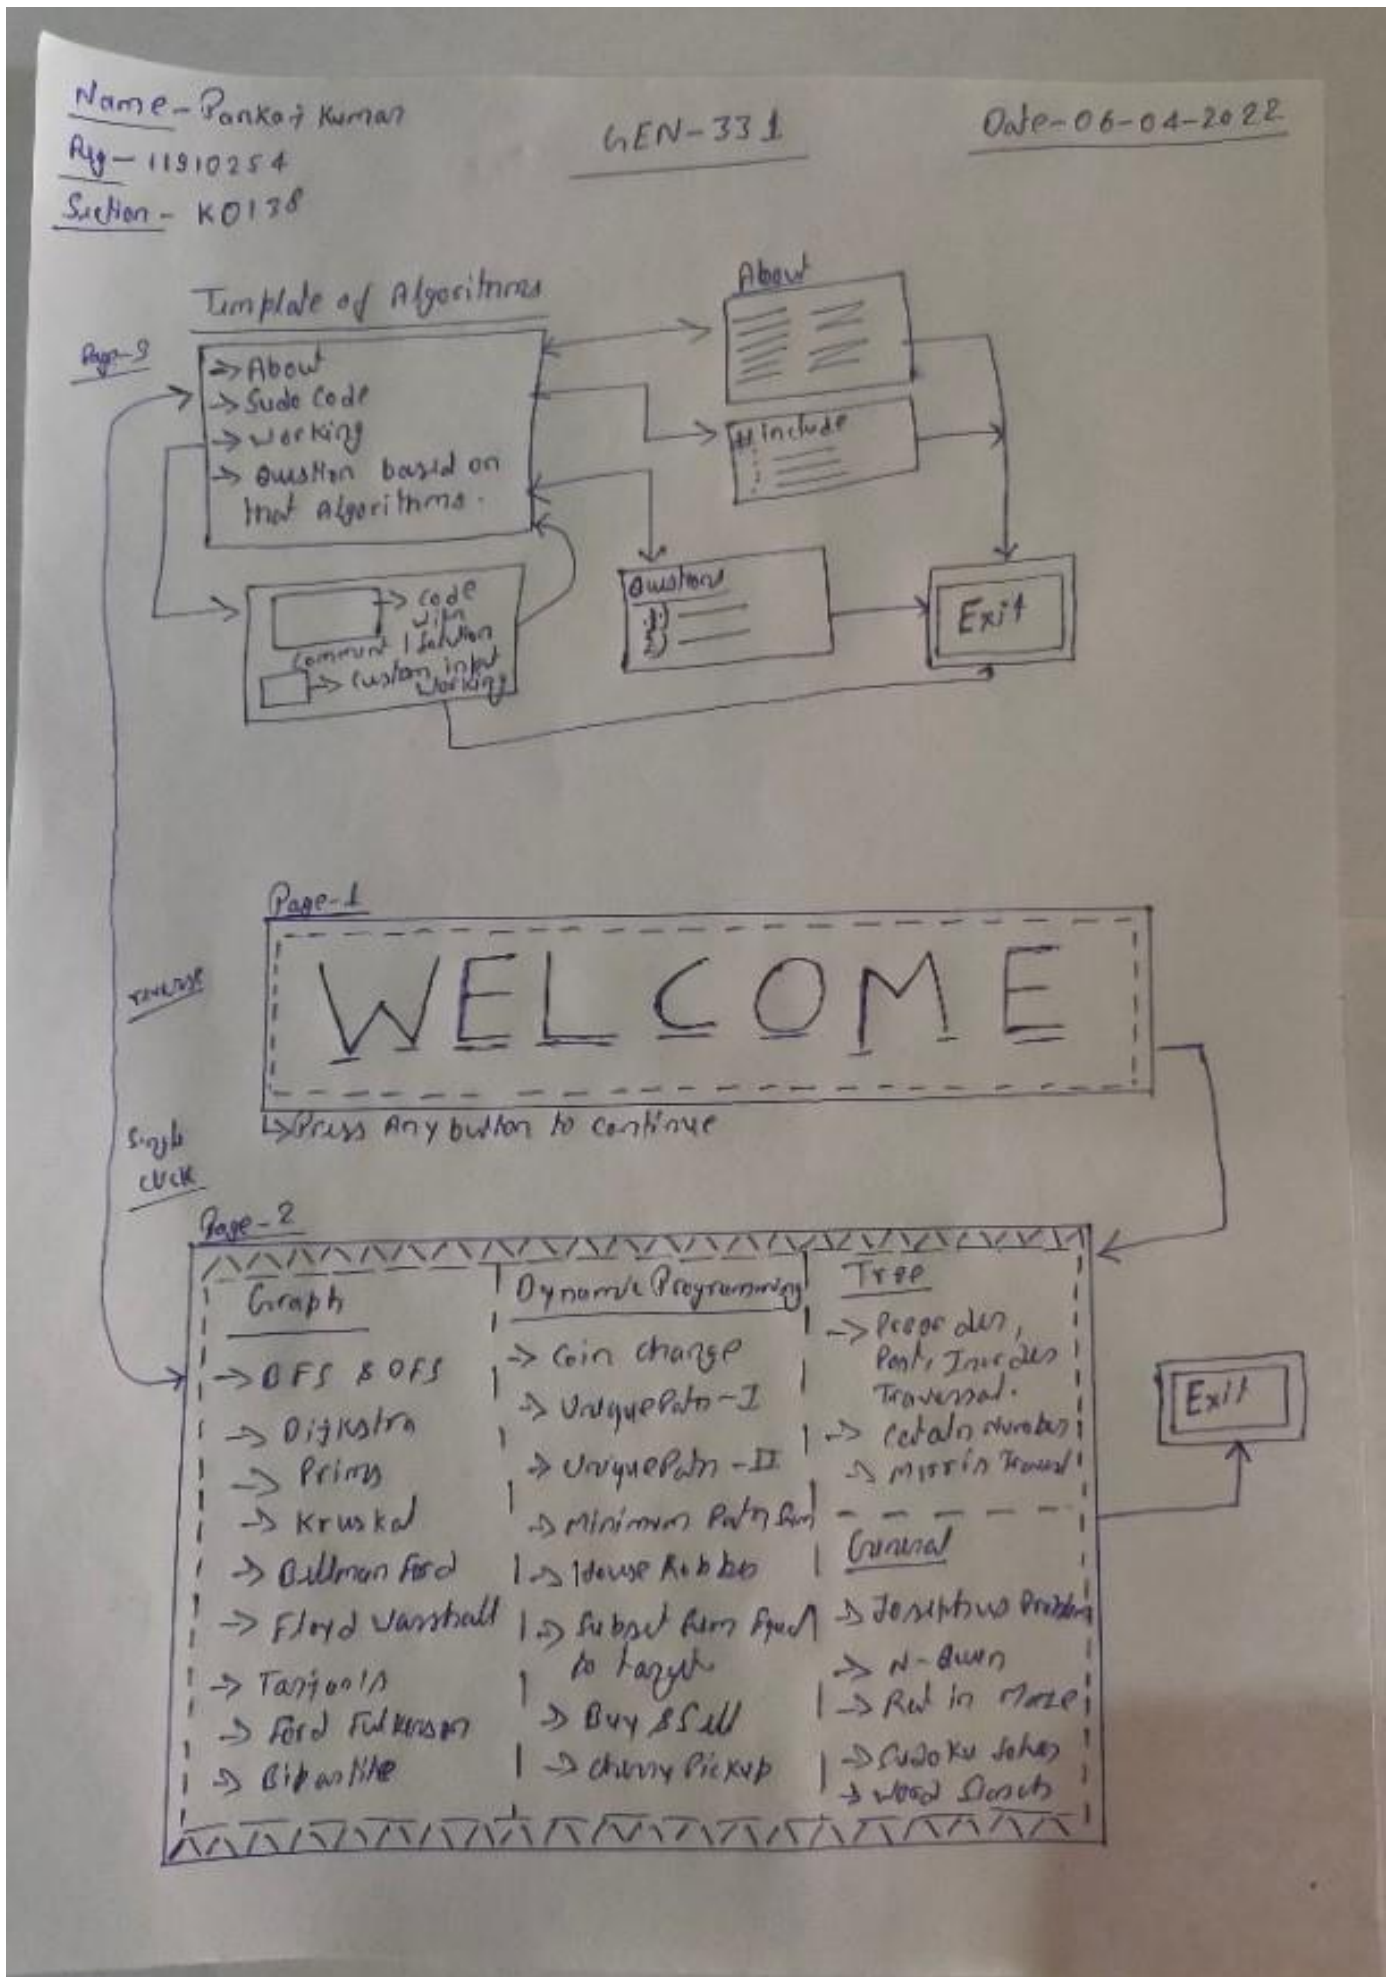 Name - Pankaj Kumar
Reg - 11910254
Section - KO138
GEN-331
Date-06-04-2022
Template of Algorithms
Page-3
→ About
→ Sudo Code
→ Working
→ Question based on
that Algorithms.
About
#include
→ Code
with
Comment | Solution
→ Custom input
Working
Questions
1)
2)
Exit
Page-1
WELCOME
↳ Press Any button to continue
reverse
Single
click
Page-2
Graph
→ BFS & DFS
→ Dijkstra
→ Prims
→ Kruskal
→ Bellman Ford
→ Floyd Warshall
→ Tarjan's
→ Ford Fulkerson
→ Bipartite
Dynamic Programming
→ Coin change
→ Unique Path-I
→ Unique Path-II
→ Minimum Path Sum
→ House Robber
→ Subset Sum Equal
to target
→ Buy & Sell
→ Cherry Pickup
Tree
→ Preorder,
Post, Inorder
Traversal.
→ Number
→
General
→ Josephus Problem
→ N-Queen
→ Rat in Maze
→ Sudoku Solver
→ Word Search
Exit